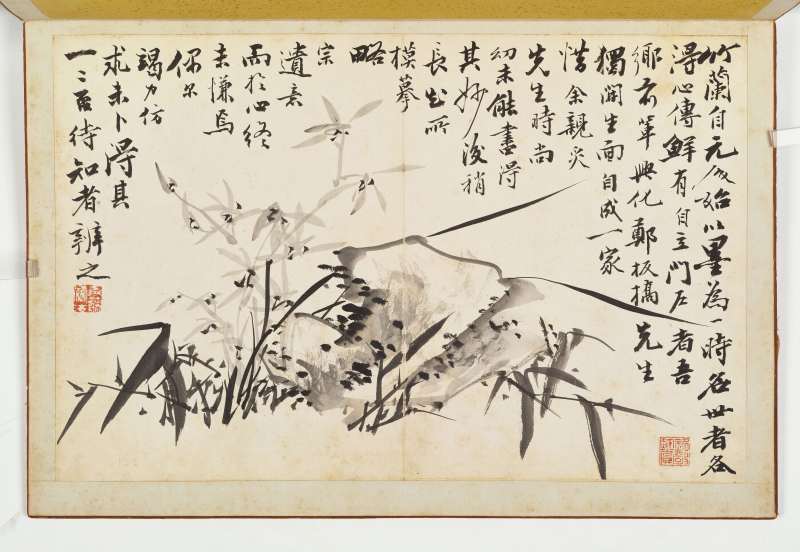 竹蘭自元人始以墨為一時名世者各
得心傳鮮有自立門戶者吾
鄉前輩興化鄭板橋先生
獨開生面自成一家
惜余親炙
先生時尚
幼未能盡得
其妙後稍
長出所
摸摹
略
宗
遺意
而於心終
未慊焉
竭力仿
求未卜得其
一二否待知者辨之